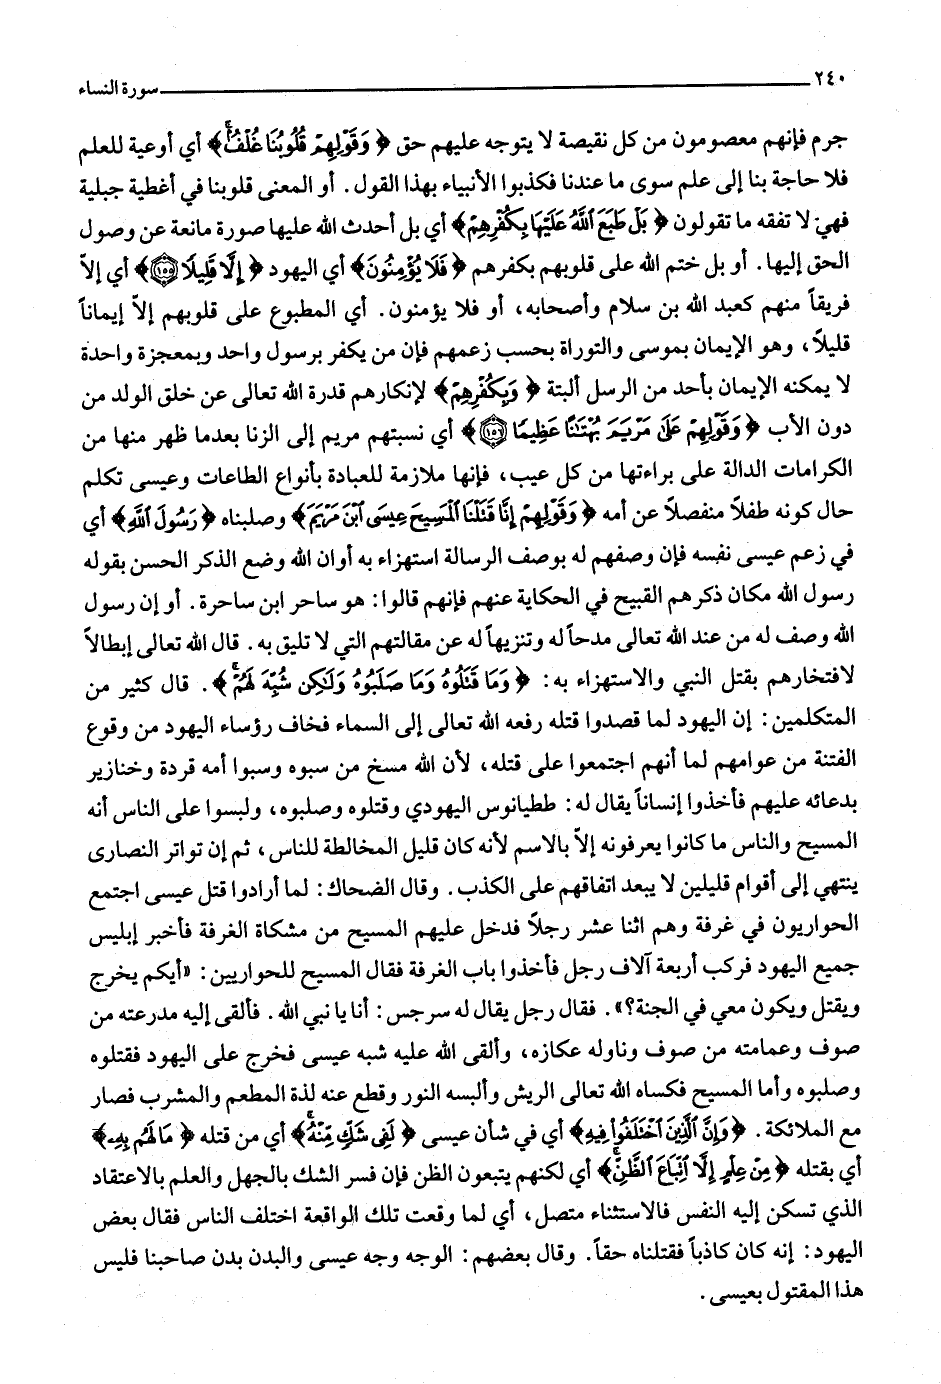 ٢٤٠ سورة النساء
جرم فإنهم معصومون من كل نقيصة لا يتوجه عليهم حق ﴿ وَقَوْلِهِمْ قُلُوبُنَا غُلْفٌۢۚ﴾ أي أوعية للعلم
فلا حاجة بنا إلى علم سوى ما عندنا فكذبوا الأنبياء بهذا القول. أو المعنى قلوبنا في أغطية جبلية
فهي لا تفقه ما تقولون ﴿ بَلْ طَبَعَ ٱللَّهُ عَلَيْهَا بِكُفْرِهِمْ﴾ أي بل أحدث الله عليها صورة مانعة عن وصول
الحق إليها. أو بل ختم الله على قلوبهم بكفرهم ﴿ فَلَا يُؤْمِنُونَ﴾ أي اليهود ﴿ إِلَّا قَلِيلًا ١٥٥﴾ أي إلاّ
فريقاً منهم كعبد الله بن سلام وأصحابه، أو فلا يؤمنون. أي المطبوع على قلوبهم إلاّ إيماناً
قليلاً، وهو الإيمان بموسى والتوراة بحسب زعمهم فإن من يكفر برسول واحد وبمعجزة واحدة
لا يمكنه الإيمان بأحد من الرسل ألبتة ﴿ وَبِكُفْرِهِمْ﴾ لإنكارهم قدرة الله تعالى عن خلق الولد من
دون الأب ﴿ وَقَوْلِهِمْ عَلَىٰ مَرْيَمَ بُهْتَٰنًا عَظِيمًا ١٥٦﴾ أي نسبتهم مريم إلى الزنا بعدما ظهر منها من
الكرامات الدالة على براءتها من كل عيب، فإنها ملازمة للعبادة بأنواع الطاعات وعيسى تكلم
حال كونه طفلاً منفصلاً عن أمه ﴿ وَقَوْلِهِمْ إِنَّا قَتَلْنَا ٱلْمَسِيحَ عِيسَى ٱبْنَ مَرْيَمَ﴾ وصلبناه ﴿ رَسُولَ ٱللَّهِ﴾ أي
في زعم عيسى نفسه فإن وصفهم له بوصف الرسالة استهزاء به أوان الله وضع الذكر الحسن بقوله
رسول الله مكان ذكرهم القبيح في الحكاية عنهم فإنهم قالوا: هو ساحر ابن ساحرة. أو إن رسول
الله وصف له من عند الله تعالى مدحاً له وتنزيهاً له عن مقالتهم التي لا تليق به. قال الله تعالى إبطالاً
لافتخارهم بقتل النبي والاستهزاء به: ﴿ وَمَا قَتَلُوهُ وَمَا صَلَبُوهُ وَلَٰكِن شُبِّهَ لَهُمْۚ﴾. قال كثير من
المتكلمين: إن اليهود لما قصدوا قتله رفعه الله تعالى إلى السماء فخاف رؤساء اليهود من وقوع
الفتنة من عوامهم لما أنهم اجتمعوا على قتله، لأن الله مسخ من سبوه وسبوا أمه قردة وخنازير
بدعائه عليهم فأخذوا إنساناً يقال له: ططيانوس اليهودي وقتلوه وصلبوه، ولبسوا على الناس أنه
المسيح والناس ما كانوا يعرفونه إلاّ بالاسم لأنه كان قليل المخالطة للناس، ثم إن تواتر النصارى
ينتهي إلى أقوام قليلين لا يبعد اتفاقهم على الكذب. وقال الضحاك: لما أرادوا قتل عيسى اجتمع
الحواريون في غرفة وهم اثنا عشر رجلاً فدخل عليهم المسيح من مشكاة الغرفة فأخبر إبليس
جميع اليهود فركب أربعة آلاف رجل فأخذوا باب الغرفة فقال المسيح للحواريين: «أيكم يخرج
ويقتل ويكون معي في الجنة؟». فقال رجل يقال له سرجس: أنا يا نبي الله. فألقى إليه مدرعته من
صوف وعمامته من صوف وناوله عكازه، وألقى الله عليه شبه عيسى فخرج على اليهود فقتلوه
وصلبوه وأما المسيح فكساه الله تعالى الريش وألبسه النور وقطع عنه لذة المطعم والمشرب فصار
مع الملائكة. ﴿ وَإِنَّ ٱلَّذِينَ ٱخْتَلَفُوا۟ فِيهِ﴾ أي في شأن عيسى ﴿ لَفِى شَكٍّ مِّنْهُۚ﴾ أي من قتله ﴿ مَا لَهُم بِهِۦ﴾
أي بقتله ﴿ مِنْ عِلْمٍ إِلَّا ٱتِّبَاعَ ٱلظَّنِّۚ﴾ أي لكنهم يتبعون الظن فإن فسر الشك بالجهل والعلم بالاعتقاد
الذي تسكن إليه النفس فالاستثناء متصل، أي لما وقعت تلك الواقعة اختلف الناس فقال بعض
اليهود: إنه كان كاذباً فقتلناه حقاً. وقال بعضهم: الوجه وجه عيسى والبدن بدن صاحبنا فليس
هذا المقتول بعيسى.